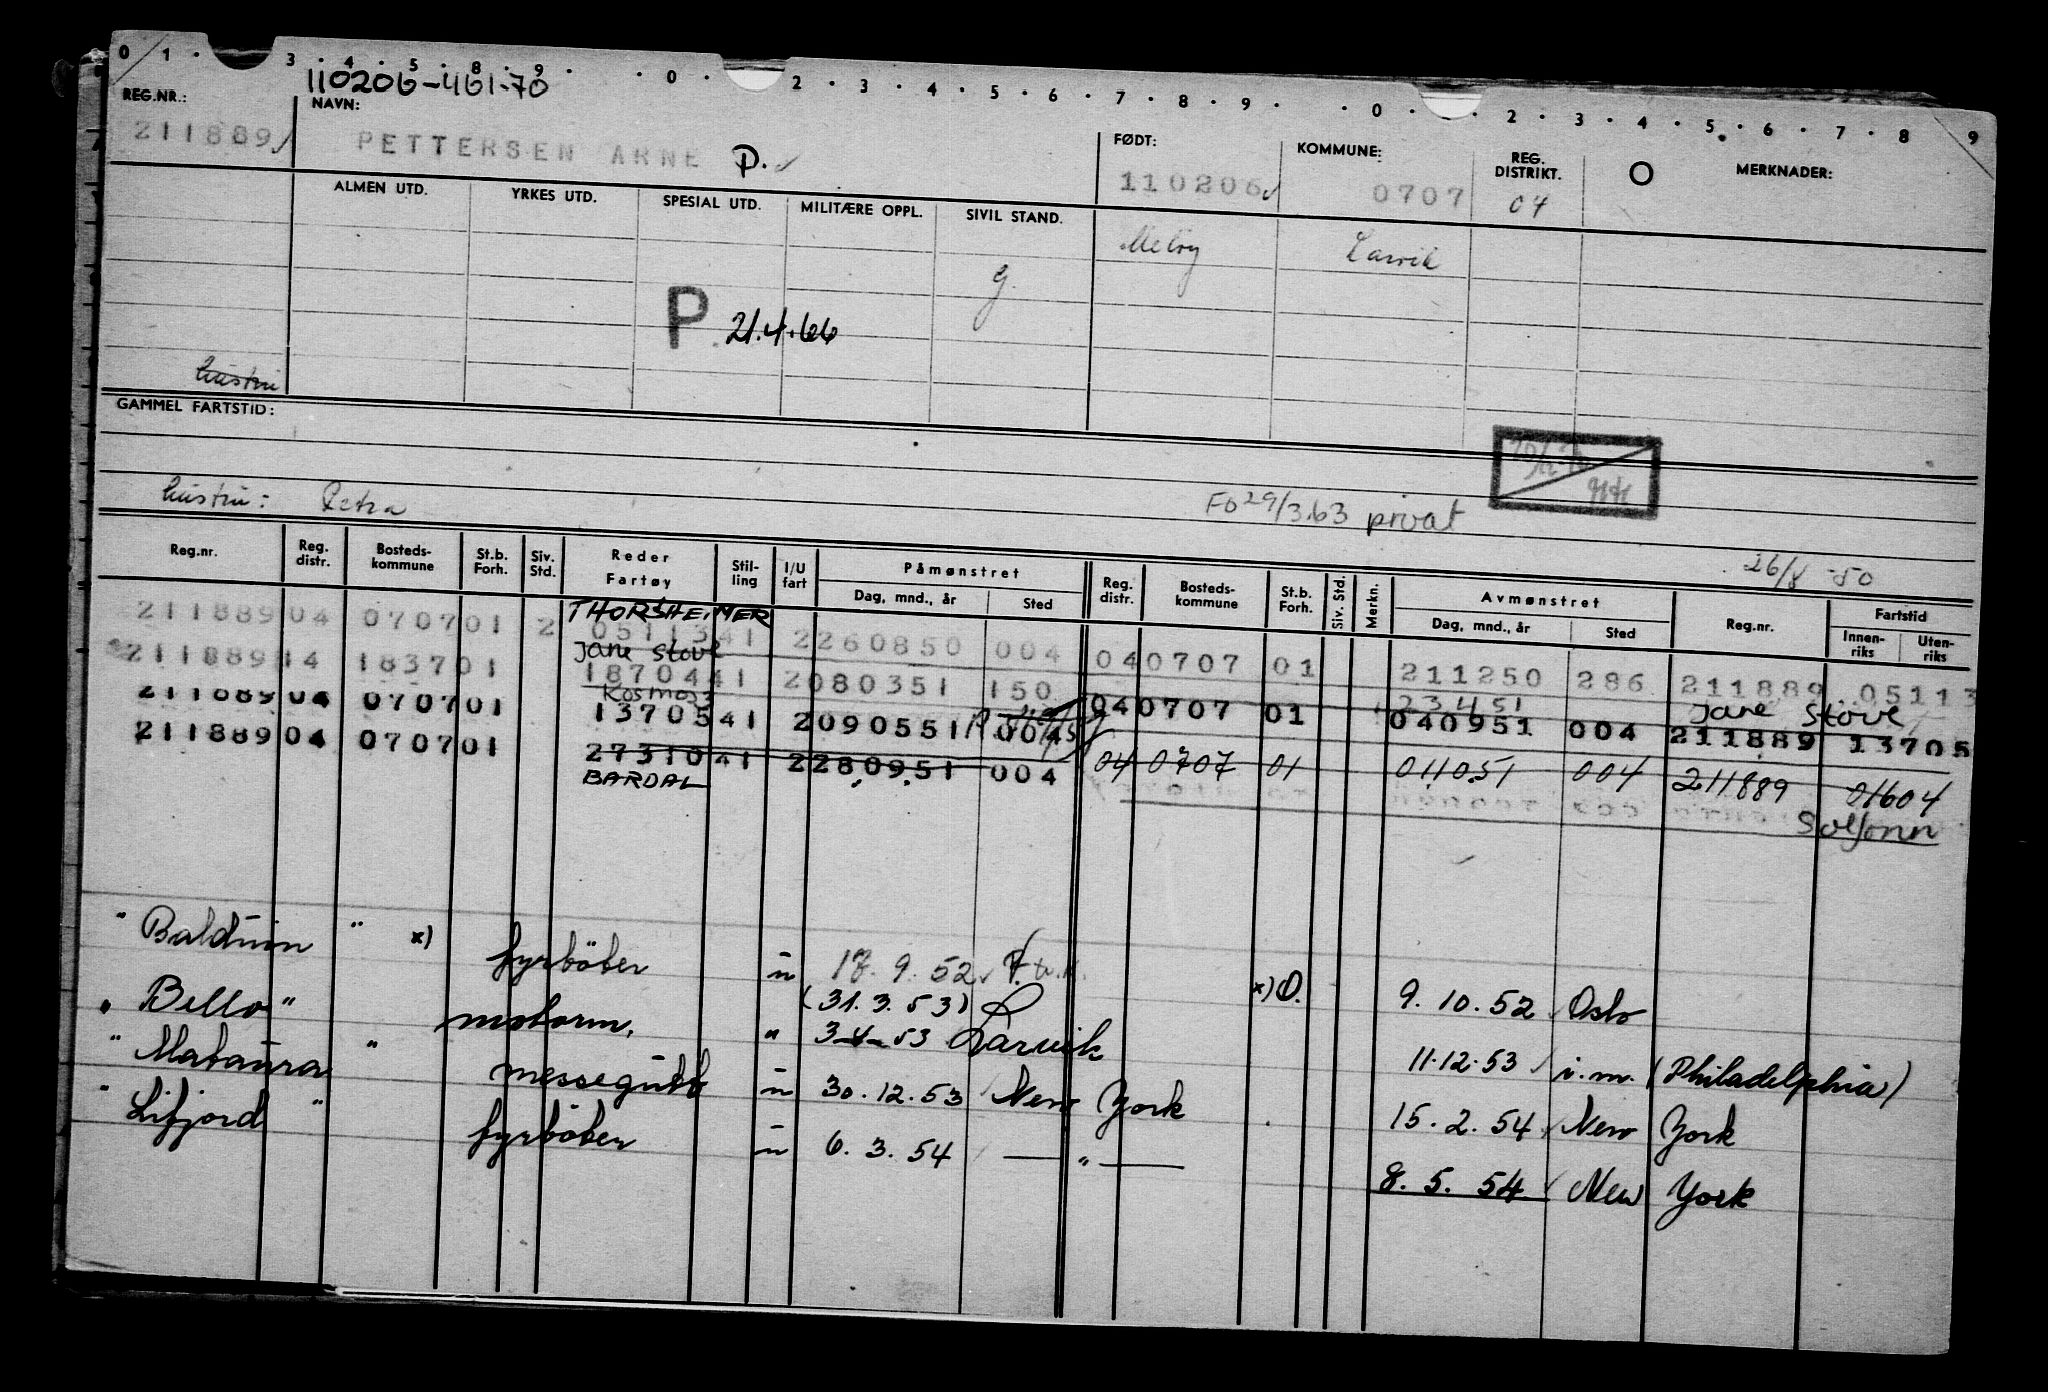 0 1 · 3 · 4 · 5 · 8 · 9 · · 0 · 2 · 3 · 4 · 5 · 6 · 7 · 8 · 9 · · 0 · 2 · 3 · 4 · 5 · 6 · 7 · 8 9
110206-461-70
REG.NR.: NAVN: FØDT: KOMMUNE: REG. DISTRIKT. O MERKNADER:
211889 PETTERSEN ARNE P. 110206 0707 04
ALMEN UTD. YRKES UTD. SPESIAL UTD. MILITÆRE OPPL. SIVIL STAND.
g. Larvik
P 21.4.66
hustru
GAMMEL FARTSTID:
hustru: Petra FO 29/3.63 privat
26/8 -50
Reg.nr. Reg. distr. Bosteds-kommune St.b. Forh. Siv. Std. Reder Fartøy Stil-ling I/U fart Påmønstret Dag, mnd., år Sted Reg. distr. Bosteds-kommune St.b. Forh. Siv. Std. Merkn. Avmønstret Dag, mnd., år Sted Reg.nr. Fartstid Innen-riks Uten-riks
THORSHEIMER
211889 04 0707 01 2 05113 41 2 260850 004 04 0707 01 211250 286 211889 05113
Jane Stove
211889 14 1837 01 18704 41 2 080351 150 23451 Jane Stove
Kosmos
211889 04 0707 01 13705 41 2 090551 004 04 0707 01 040951 004 211889 13705
211889 04 0707 01 27310 41 2 280951 004 04 0707 01 011051 004 211889 01604
BARDAL Solfonn
" Balduin " x) fyrböter u 17. 9. 52 x) O. 9. 10. 52 Oslo
(31. 3. 53)
" Bello " motorm. " 3-4-53 Larvik 11.12.53 i.m. (Philadelphia)
" Mataura " messegutt u 30. 12. 53 New York 15. 2. 54 New York
" Lifjord " fyrböter u 6. 3. 54 — " — 8. 5. 54 New York